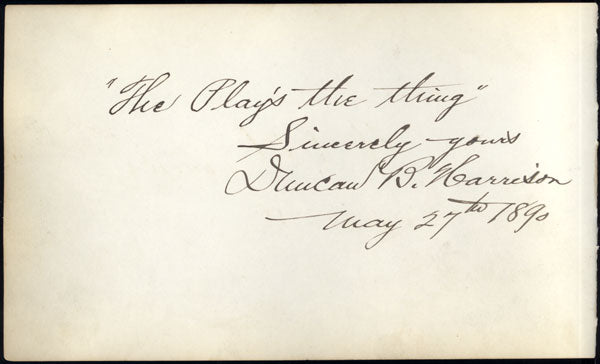 "The Play's the thing"
Sincerely yours
Duncan B. Harrison
May 27th 1890